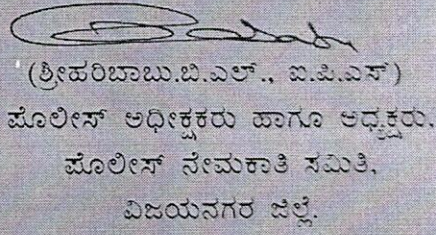 (ಶ್ರೀಹರಿಬಾಬು.ಬಿ.ಎಲ್., ಐ.ಪಿ.ಎಸ್)
ಪೊಲೀಸ್ ಅಧೀಕ್ಷಕರು ಹಾಗೂ ಅಧ್ಯಕ್ಷರು.
ಪೊಲೀಸ್ ನೇಮಕಾತಿ ಸಮಿತಿ,
ವಿಜಯನಗರ ಜಿಲ್ಲೆ.